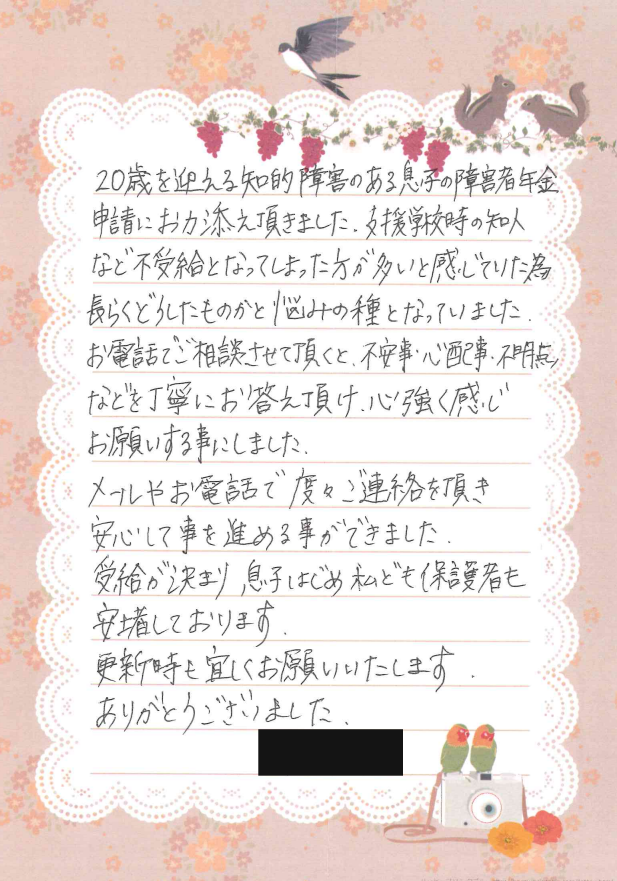 20歳を迎える知的障害のある息子の障害者年金
申請にお力添え頂きました.支援学校時の知人
など不受給となってしまった方が多いと感じていた為
長らくどうしたものかと悩みの種となっていました.
お電話でご相談させて頂くと、不安事・心配事・不明点
などを丁寧にお答え頂け、心強く感じ
お願いする事にしました.
メールやお電話で度々ご連絡を頂き
安心して事を進める事ができました.
受給が決まり、息子はじめ私ども保護者も
安堵しております.
更新時も宜しくお願いいたします.
ありがとうございました.